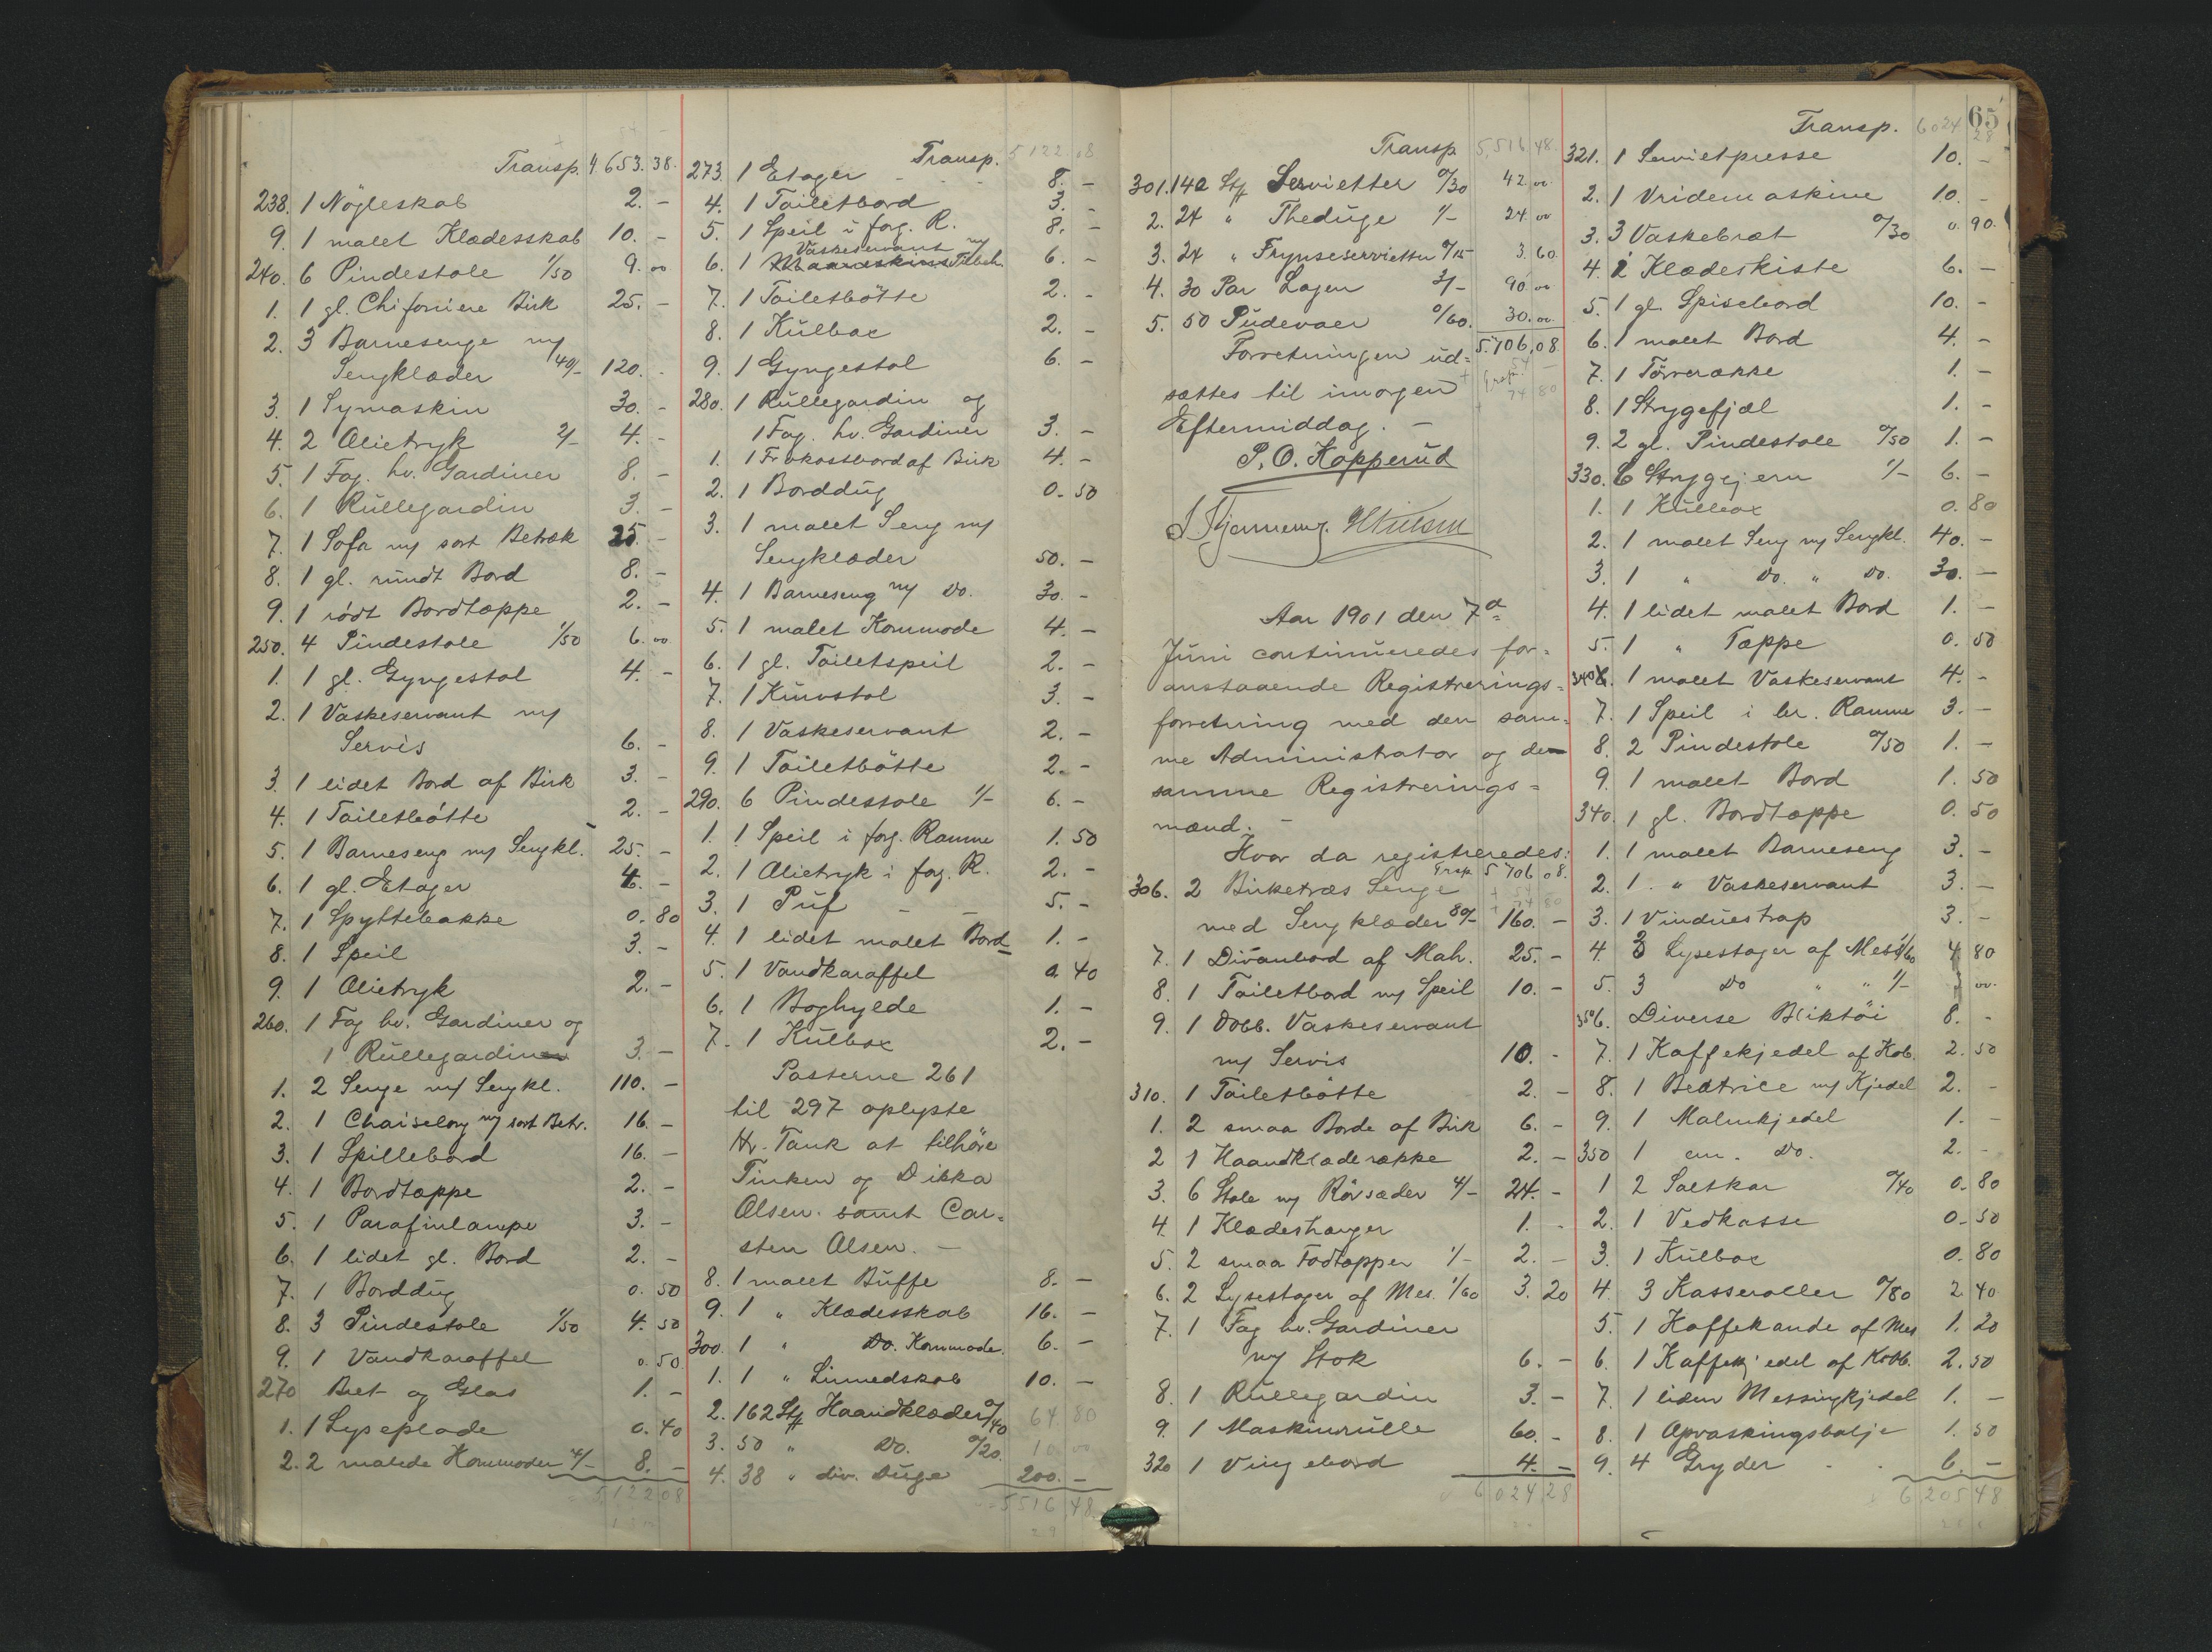 Transp. 4 653. 38.
238. 1 Nøgleskab 2. -
9. 1 malet Klædesskab 10. -
240. 6 Pindestole 1/50 9. 00
1. 1 gl. Chifoniere Birk 25. -
2. 3 Barnesenge m/
Sengklæder 40/- 120. -
3. 1 Symaskin 30. -
4. 2 Olietryk 2/- 4. -
5. 1 Fag. hv. Gardiner 8. -
6. 1 Rullegardin 3. -
7. 1 Sofa m/ sort Betræk 25. -
8. 1 gl. rundt Bord 8. -
9. 1 rødt Bordtæppe 2. -
250. 4 Pindestole 1/50 6. 00
1. 1 gl. Gyngestol 4. -
2. 1 Vaskeservant m/
Servis 6. -
3. 1 lidet Bord af Birk 3. -
4. 1 Toiletbøtte 2. -
5. 1 Barneseng m/ Sengkl. 25. -
6. 1 gl. Etager 4. -
7. 1 Spyttebakke 0. 80
8. 1 Speil 3. -
9. 1 Olietryk 2. -
260. 1 Fag hv. Gardiner og
1 Rullegardin 3. -
1. 2 Senge m/ Sengkl. 110. -
2. 1 Chaiselong m/ sort Betr. 16. -
3. 1 Spillebord 16. -
4. 1 Bordtæppe 2. -
5. 1 Parafinlampe 3. -
6. 1 lidet gl. Bord 2. -
7. 1 Borddug 0. 50
8. 3 Pindestole 1/50 4. 50
9. 1 Vandkaraffel 0. 50
270 Bret og Glas 1. -
1. 1 Lyseplade 0. 40
2. 2 malede Kommoder 4/- 8. -
5,122 08
Transp. 5 122. 08
273. 1 Etager 8. -
4. 1 Toiletbord 3. -
5. 1 Speil i forg. R. 8. -
Vaskeservant m/
6. 1 Tilbeh. 6. -
7. 1 Toiletbøtte 2. -
8. 1 Kulbox 2. -
9. 1 Gyngestol 6. -
280. 1 Rullegardin og
1 Fag. hv. Gardiner 3. -
1. 1 Frokostbord af Birk 4. -
2. 1 Borddug 0. 50
3. 1 malet Seng m/
Sengklæder 50. -
4. 1 Barneseng m/ Do. 30. -
5. 1 malet Kommode 4. -
6. 1 gl. Toiletspeil 2. -
7. 1 Kurvstol 3. -
8. 1 Vaskeservant 2. -
9. 1 Toiletbøtte 2. -
290. 6 Pindestole 1/- 6. -
1. 1 Speil i forg. Ramme 1. 50
2. 1 Olietryk i forg. R. 2. -
3. 1 Puf 5. -
4. 1 lidet malet Bord 1. -
5. 1 Vandkaraffel 0. 40
6. 1 Boghylde 1. -
7. 1 Kulbox 2. -
Posterne 261
til 297 oplyste
Hr. Tank at tilhøre
Tinken og Dikka
Olsen. samt Car-
sten Olsen. -
8. 1 malet Buffe 8. -
9. 1 " Klædesskab 16. -
300. 1 " Do. Kommode. 6. -
1. 1 " Linnedskab 10. -
2. 162 Stk Haandklæder 0/40 64. 80
3. 50 " Do. 0/20. 10. 00
4. 38 " div. Duge 200. -
5516.48
Transp 5,516.48.
301. 140 Stk Servietter 0/30 42. 00.
2. 24 " Theduge 1/- 24. 00
3. 24 " Frynseservietter 0/15 3. 60
4. 30 Par Lagen 3/- 90. 00
5. 50 Pudevaer 0/60. 30. 00.
5.706.08.
Forretningen ud-
sættes til imorgen
Eftermiddag. -
P. O. Kopperud
Aar 1901 den 7de
Juni continueredes for-
anstaaende Registrerings-
forretning med den sam-
me Administrator og de
samme Registrerings-
mænd. -
Hvor da registreredes:
Trsp 5 706.08.
306. 2 Birketræs Senge
med Sengklæder 80/- 160. -
7. 1 Divanbord af Mah. 25. -
8. 1 Toiletbord m/ Speil 10. -
9. 1 Dobb. Vaskeservant
m/ Servis 10. -
310. 1 Toiletbøtte 2. -
1. 2 smaa Borde af Birk 6. -
2 1 Haandklæderække 2. -
3. 6 Stole m/ Rørsæder 4/- 24. -
4. 1 Klædeshænger 1. -
5. 2 smaa Fodtæpper 1/- 2. -
6. 2 Lysestager af Mes. 1/60 3. 20
7. 1 Fag hv. Gardiner
m/ Stok 6. -
8. 1 Rullegardin 3. -
9. 1 Maskinrulle 60. -
320 1 Vingebord 4. -
6 024 28
65
Transp. 6024 28
321. 1 Servietpresse 10. -
2. 1 Vridemaskine 10. -
3. 3 Vaskebræt 0/30 0. 90.
4. 1 Klædeskiste 6. -
5. 1 gl. Spisebord 10. -
6. 1 malet Bord 4. -
7. 1 Tørrerække 1. -
8. 1 Strygefjæl 1. -
9. 2 gl. Pindestole 0/50 1. -
330. 6 Strygejern 1/- 6. -
1. 1 Kulbox 0. 80
2. 1 malet Seng m/ Sengkl. 40. -
3. 1 " Do. " Do. 30. -
4. 1 lidet malet Bord 1. -
5. 1 " Tæppe 0. 50
1 malet Vaskeservant 4. -
7. 1 Speil i br. Ramme 3. -
8. 2 Pindestole 0/50 1. -
9. 1 malet Bord 1. 50
340. 1 gl. Bordtæppe 0. 50
1. 1 malet Barneseng 3. -
2. 1. " Vaskeservant 3. -
3. 1 Vinduestrap 3. -
4. 3 Lysestager af Mes 1/60 4 80
5. 3 Do " " 1/- 3 00.
6. Diverse Bliktøi 8. -
7. 1 Kaffekjedel af Kob. 2. 50
8. 1 Beatrice m/ Kjedel 2. -
9. 1 Malmkjedel 1. -
350 1 em. Do. 2. -
1 2 Saltkar 0/40 0. 80
2. 1 Vedkasse 0. 50
3. 1 Kulbox 0. 80
4. 3 Kasseroller 0/80 2 40
5. 1 Kaffekande af Mes 1. 20
6. 1 Kaffekjedel af Kobb. 2. 50
7. 1 liden Messingkjedel 1. -
8. 1 Opvaskingsbalje 1. 50
9. 4 Gryder 6. -
6,205 48